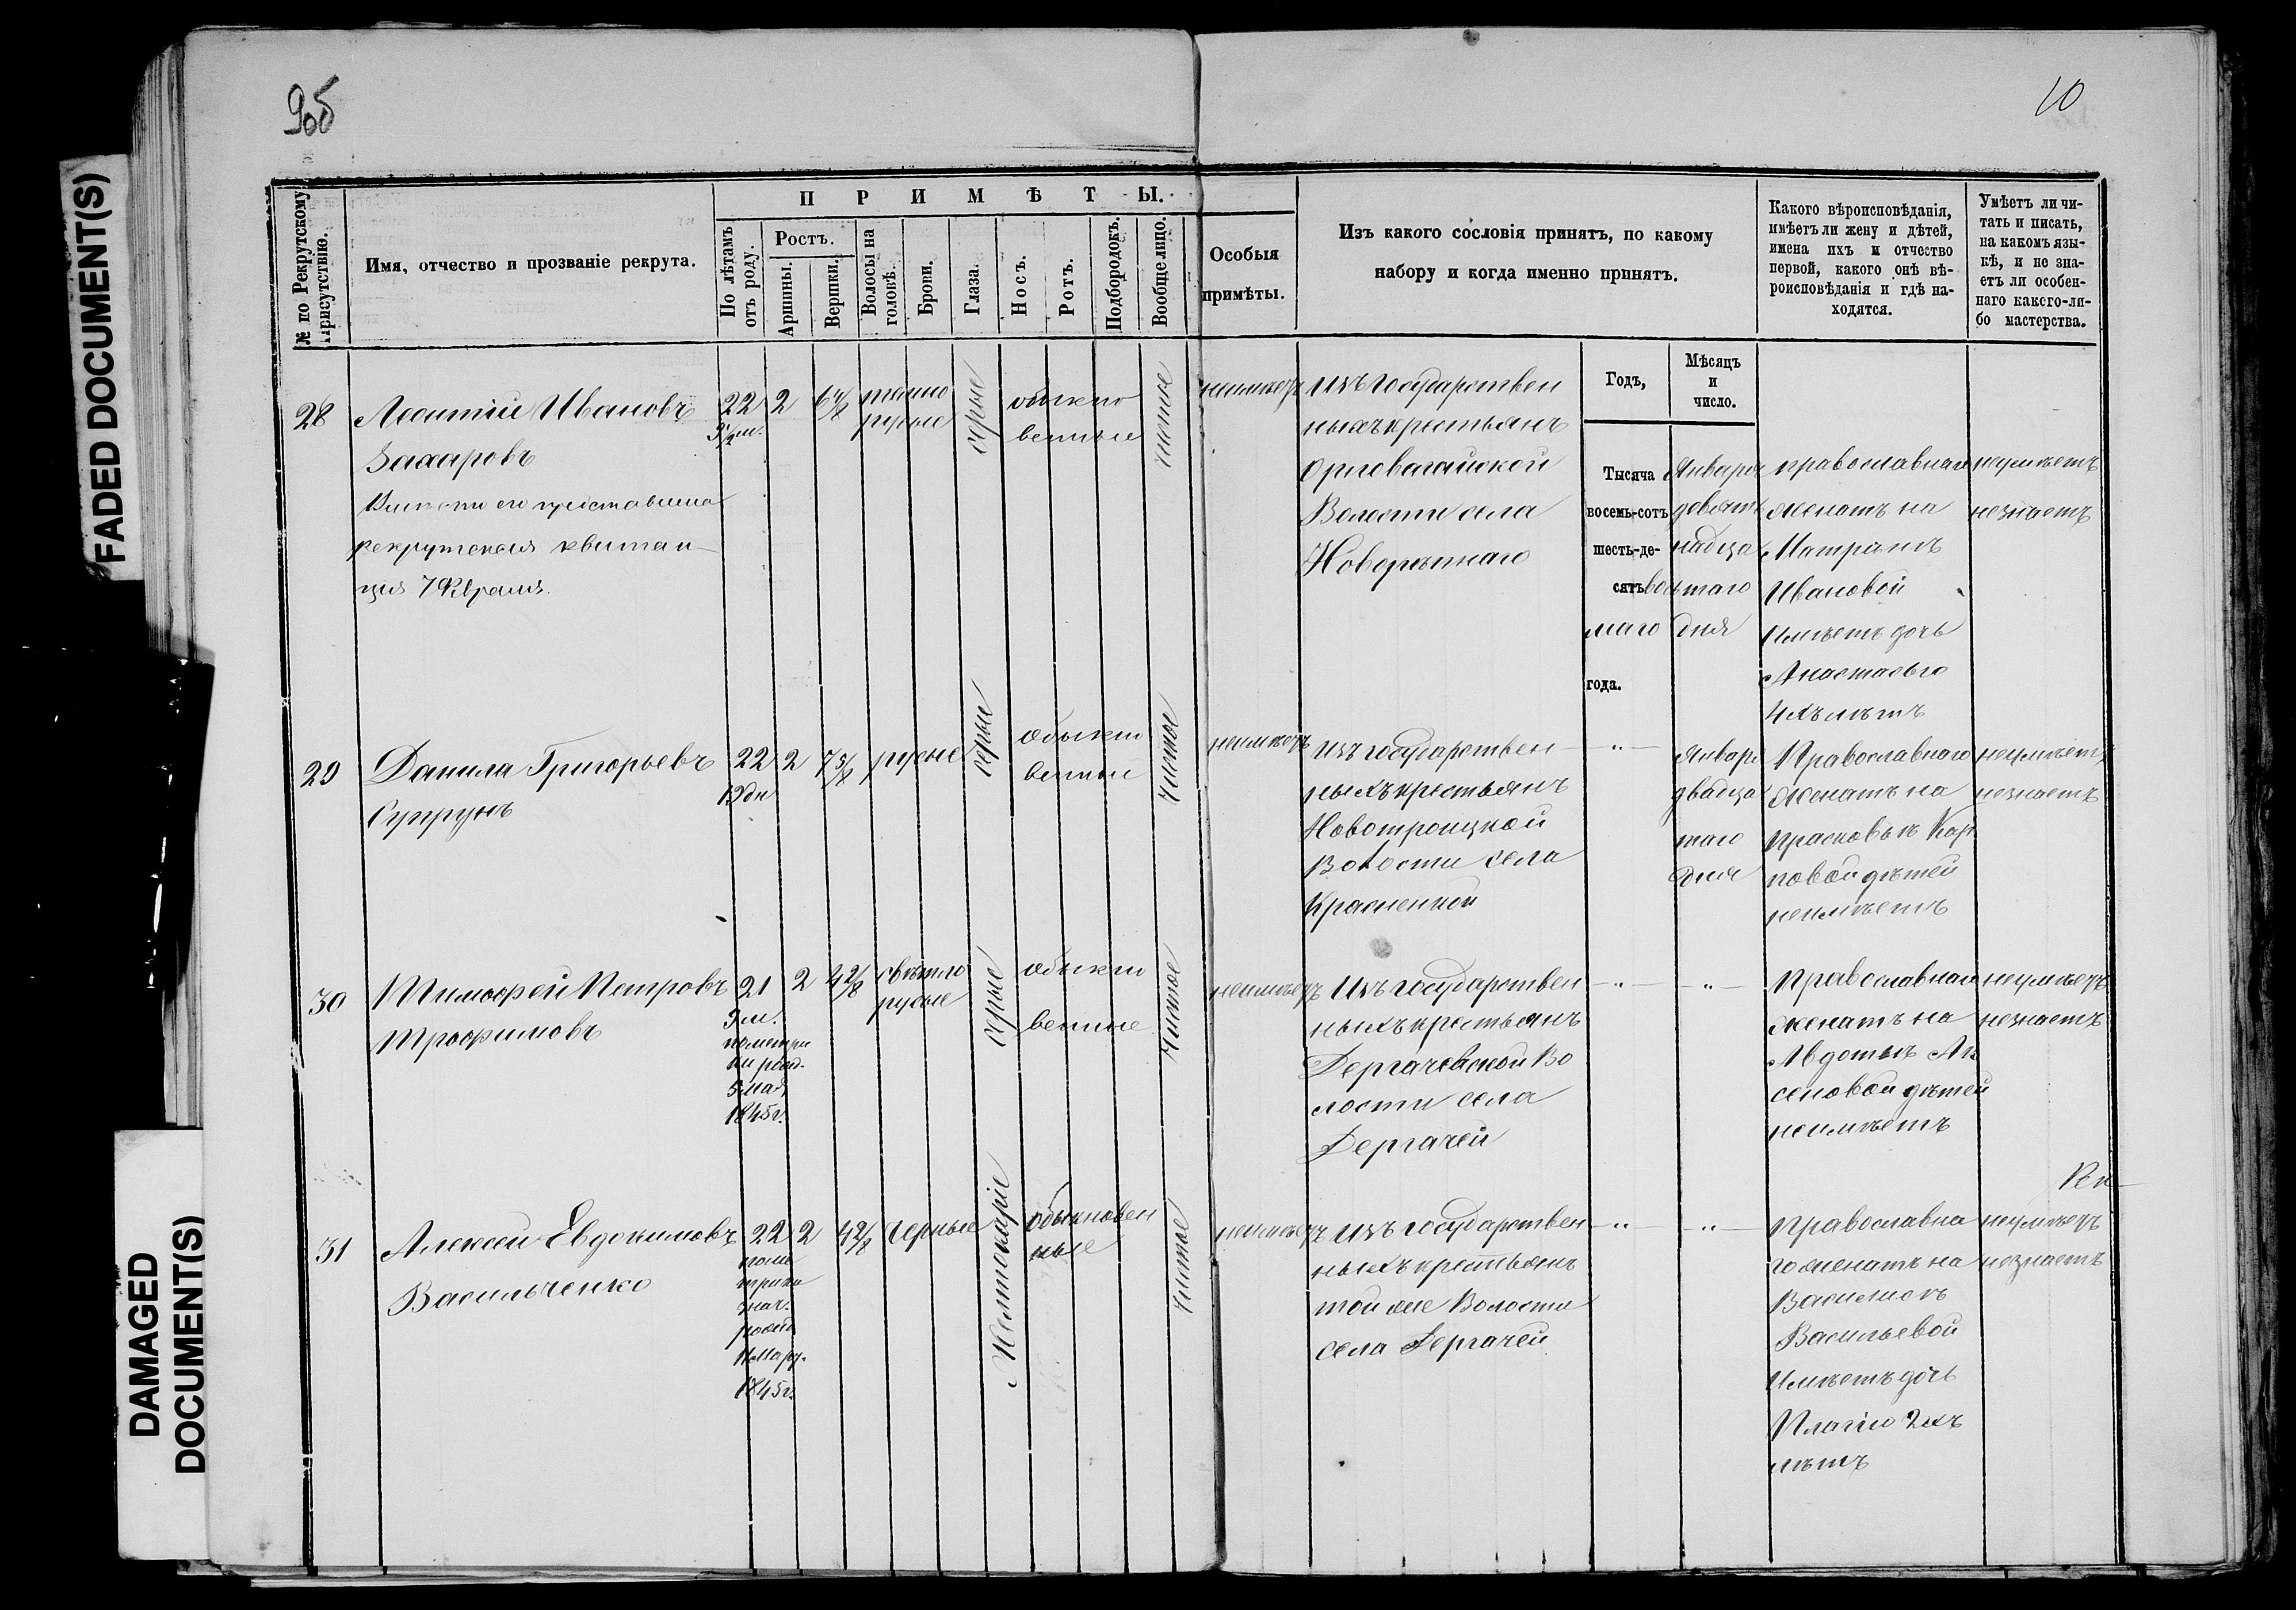 FADED DOCUMENT(S)
DAMAGED
DOCUMENT(S)
9об
10
№ по Рекрутскому
Присутствію.
Имя, отчество и прозваніе рекрута.
ПРИМѢТЫ.
По лѣтамъ
отъ роду.
Ростъ.
Аршины.
Вершки.
Волосы на
головѣ.
Брови.
Глаза.
Носъ.
Ротъ.
Подбородокъ.
Вообще лицо.
Особыя
примѣты.
Изъ какого сословія принятъ, по какому
набору и когда именно принятъ.
Какого вѣроисповѣданія,
имѣетъ ли жену и дѣтей,
имена ихъ и отчество
первой, какого онѣ вѣ-
роисповѣданія и гдѣ на-
ходятся.
Умѣетъ ли чи-
тать и писать,
на какомъ язы-
кѣ, и не зна-
етъ ли особен-
наго какого-ли-
бо мастерства.
Годъ,
Мѣсяцъ
и
число.
28
Леонтій Ивановъ
Захаровъ
его представлена
рекрутская квитан-
ція 7 Февраля.
22
2
6 4/8
темно
русые
серые
обыкно
венные
чистое
неимѣетъ
Изъ государствен
ныхъ крестьянъ
Волости села
Тысяча
восемь-сотъ
шесть-де-
сятъ вось
маго
года.
Января
девят
надца
таго
дня
православнаго
женатъ на
Матренѣ
Ивановой
имѣетъ дочь
Анастасью
4хъ лѣтъ
неумѣетъ
незнаетъ
29
Данила Григорьевъ
Супрунъ
22
19 дн
2
7 5/8
русые
серые
обыкно
венные
чистое
неимѣетъ
Изъ государствен-
ныхъ крестьянъ
Новотроицкой
Волости села
Красненкой
-"-
Января
двадца
таго
дня
Православнаго
женатъ на
Прасковьѣ Кар
повой дѣтей
неимѣетъ
неумѣетъ
незнаетъ
30
Тимофей Петровъ
Трофимовъ
21
по метри
ки рожд.
1845г.
2
4 2/8
свѣтло
русые
серые
обыкно
венные
чистое
неимѣетъ
Изъ государствен
ныхъ крестьянъ
Дергачевской Во
лости села
Дергачей
-"-
-"-
Православнаго
женатъ на
Авдотьѣ
дѣтей
неимѣетъ
неумѣетъ
незнаетъ
31
Алексей Евдокимовъ
Васильченко
22
по ме
трика
знач.
рожд
1845г.
2
4 2/8
черные
Желтокаріе
обыкновен
ные
чистое
неимѣетъ
Изъ государствен
ныхъ крестьянъ
той же Волости
села Дергачей
-"-
-"-
Православна
го женатъ на
Василисѣ
Васильевой
имѣетъ дочь
Плагію 2хъ
лѣтъ
неумѣетъ
незнаетъ